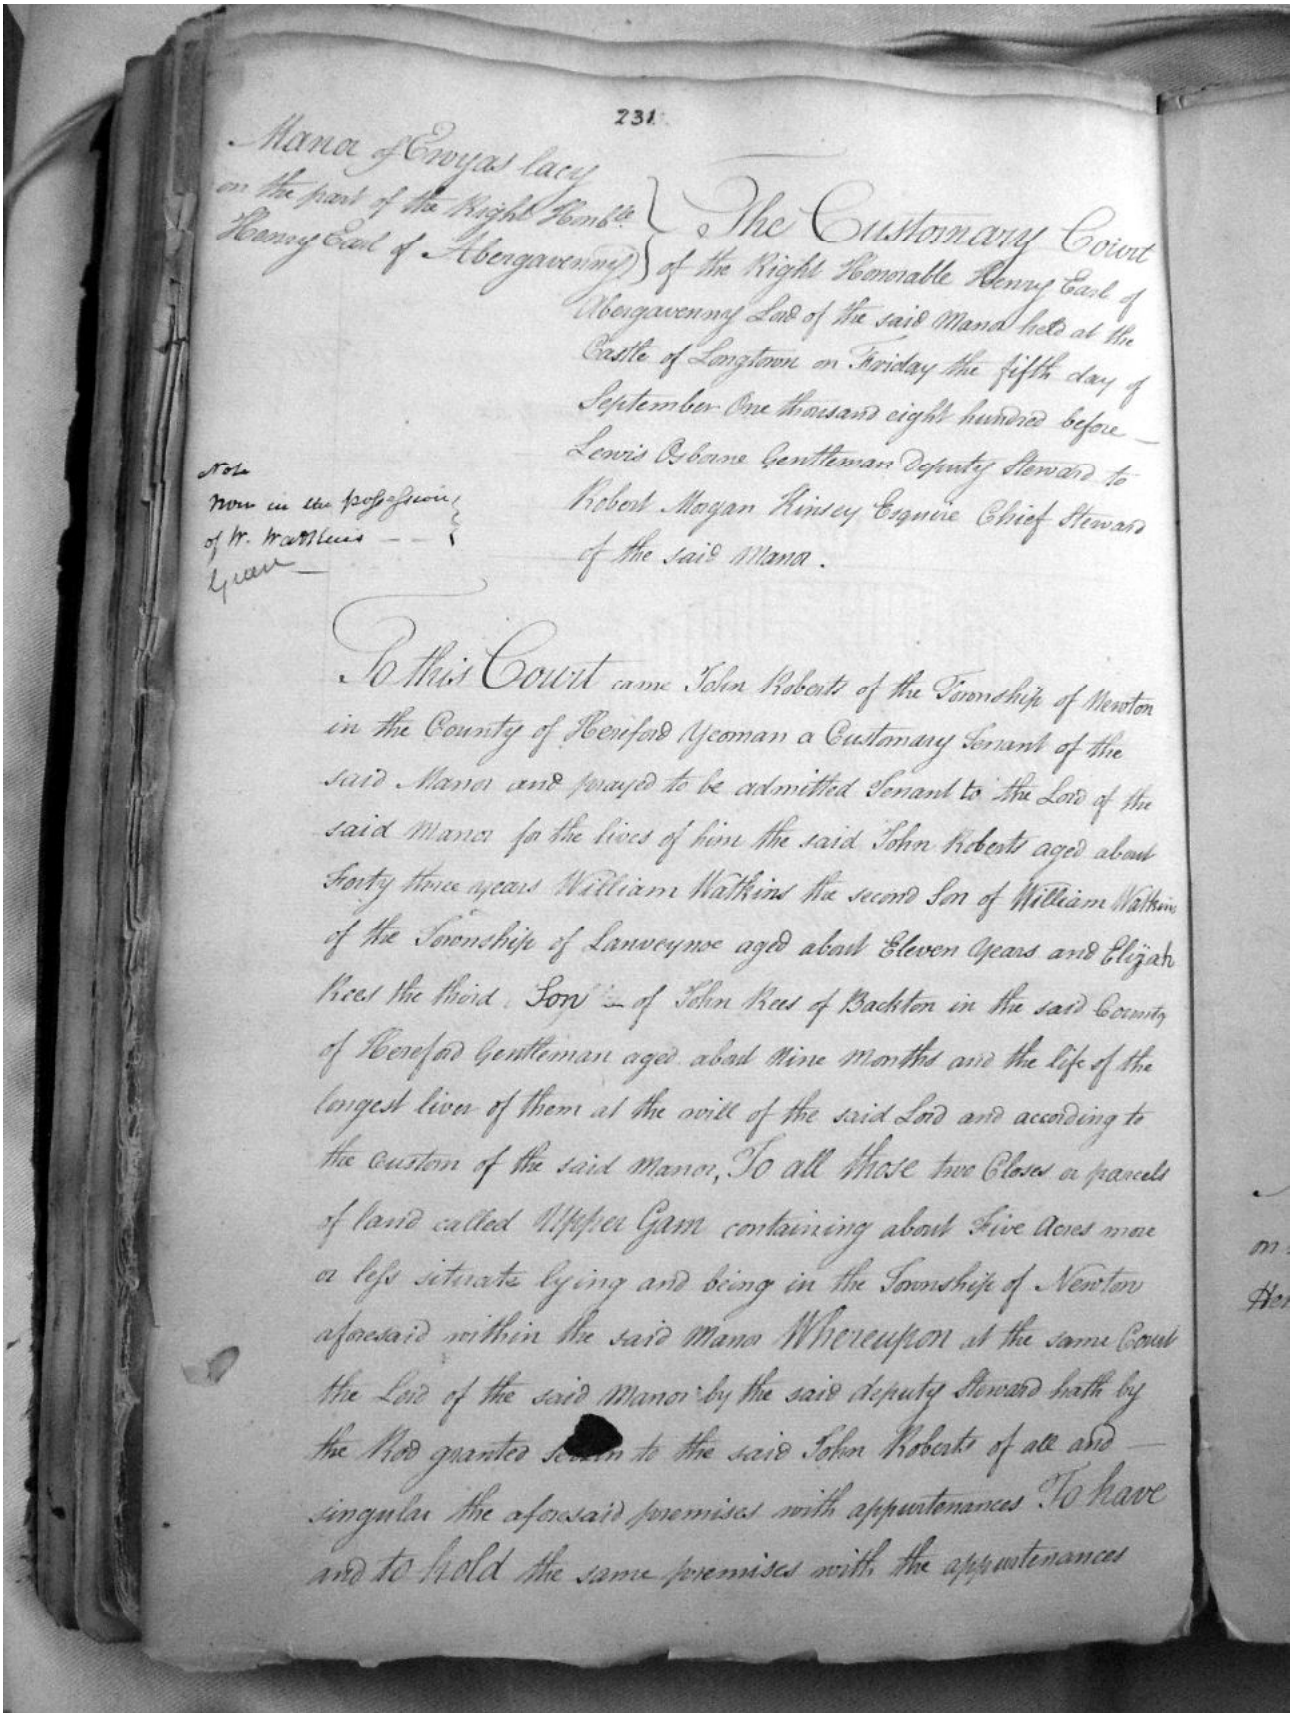 231
Manor of Ewyas lacy
on the part of the Right Honble.
Henry Earl of Abergavenny
The Customary Court
of the Right Honorable Henry Earl of
Abergavenny Lord of the said Manor held at the
Castle of Longtown on Friday the fifth day of
September One thousand eight hundred before
Lewis Osborne Gentleman Deputy Steward to
Robert Morgan Kinsey Esquire Chief Steward
of the said Manor.
Note
Now in the possession
of W. Watkins
To this Court came John Roberts of the Township of Newton
in the County of Hereford Yeoman a Customary Tenant of the
said Manor and prayed to be admitted Tenant to the Lord of the
said Manor for the lives of him the said John Roberts aged about
Forty three years William Watkins the second Son of William Watkins
of the Township of Lanveynoe aged about Eleven Years and Elijah
Rees the third Son of John Rees of Backton in the said County
of Hereford Gentleman aged about Nine Months and the life of the
longest liver of them at the will of the said Lord and according to
the custom of the said Manor, To all those two Closes or parcels
of land called Upper Gam containing about Five Acres more
or less situate lying and being in the Township of Newton
aforesaid within the said Manor Whereupon at the same Court
the Lord of the said Manor by the said deputy Steward hath by
the Rod granted to the said John Roberts of all and
singular the aforesaid premises with appurtenances To have
and to hold the same premises with the appurtenances
on